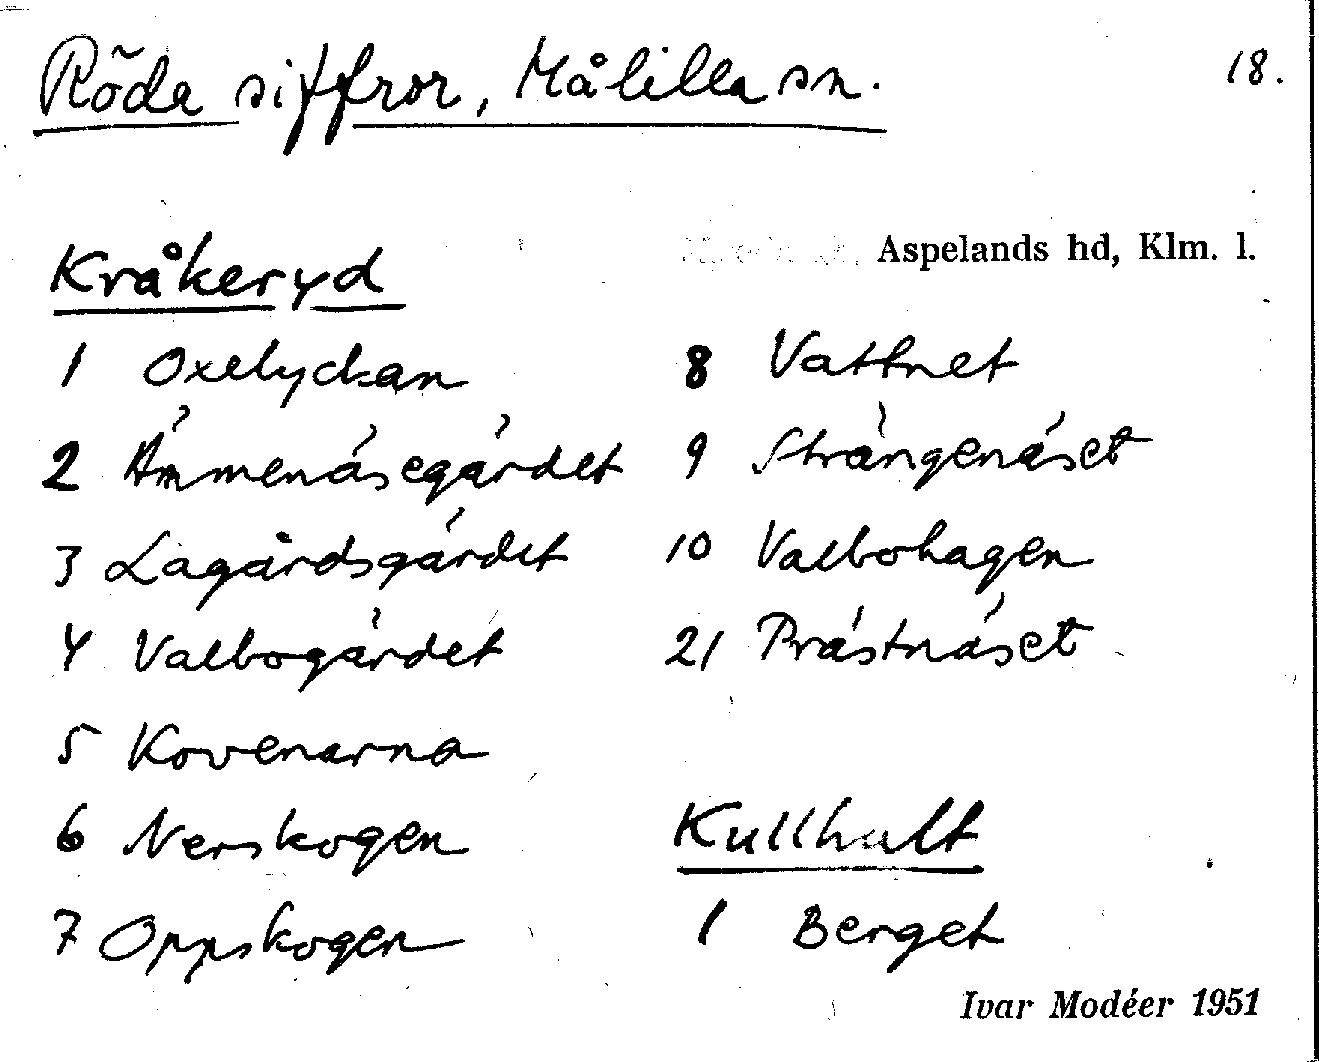 Röda siffror, Målilla sn.
18.
Aspelands hd, Klm. l.
Kråkeryd
1 Oxelyckan
2 Ämmenäsegärdet
3 Lagårdsgärdet
4 Valbogärdet
5 Kovenarna
6 Nerskogen
7 Oppskogen
8 Vattnet
9 Strängenäset
10 Valbohagen
21 Prästnäset
Kullhult
1 Berget
Ivar Modéer 1951